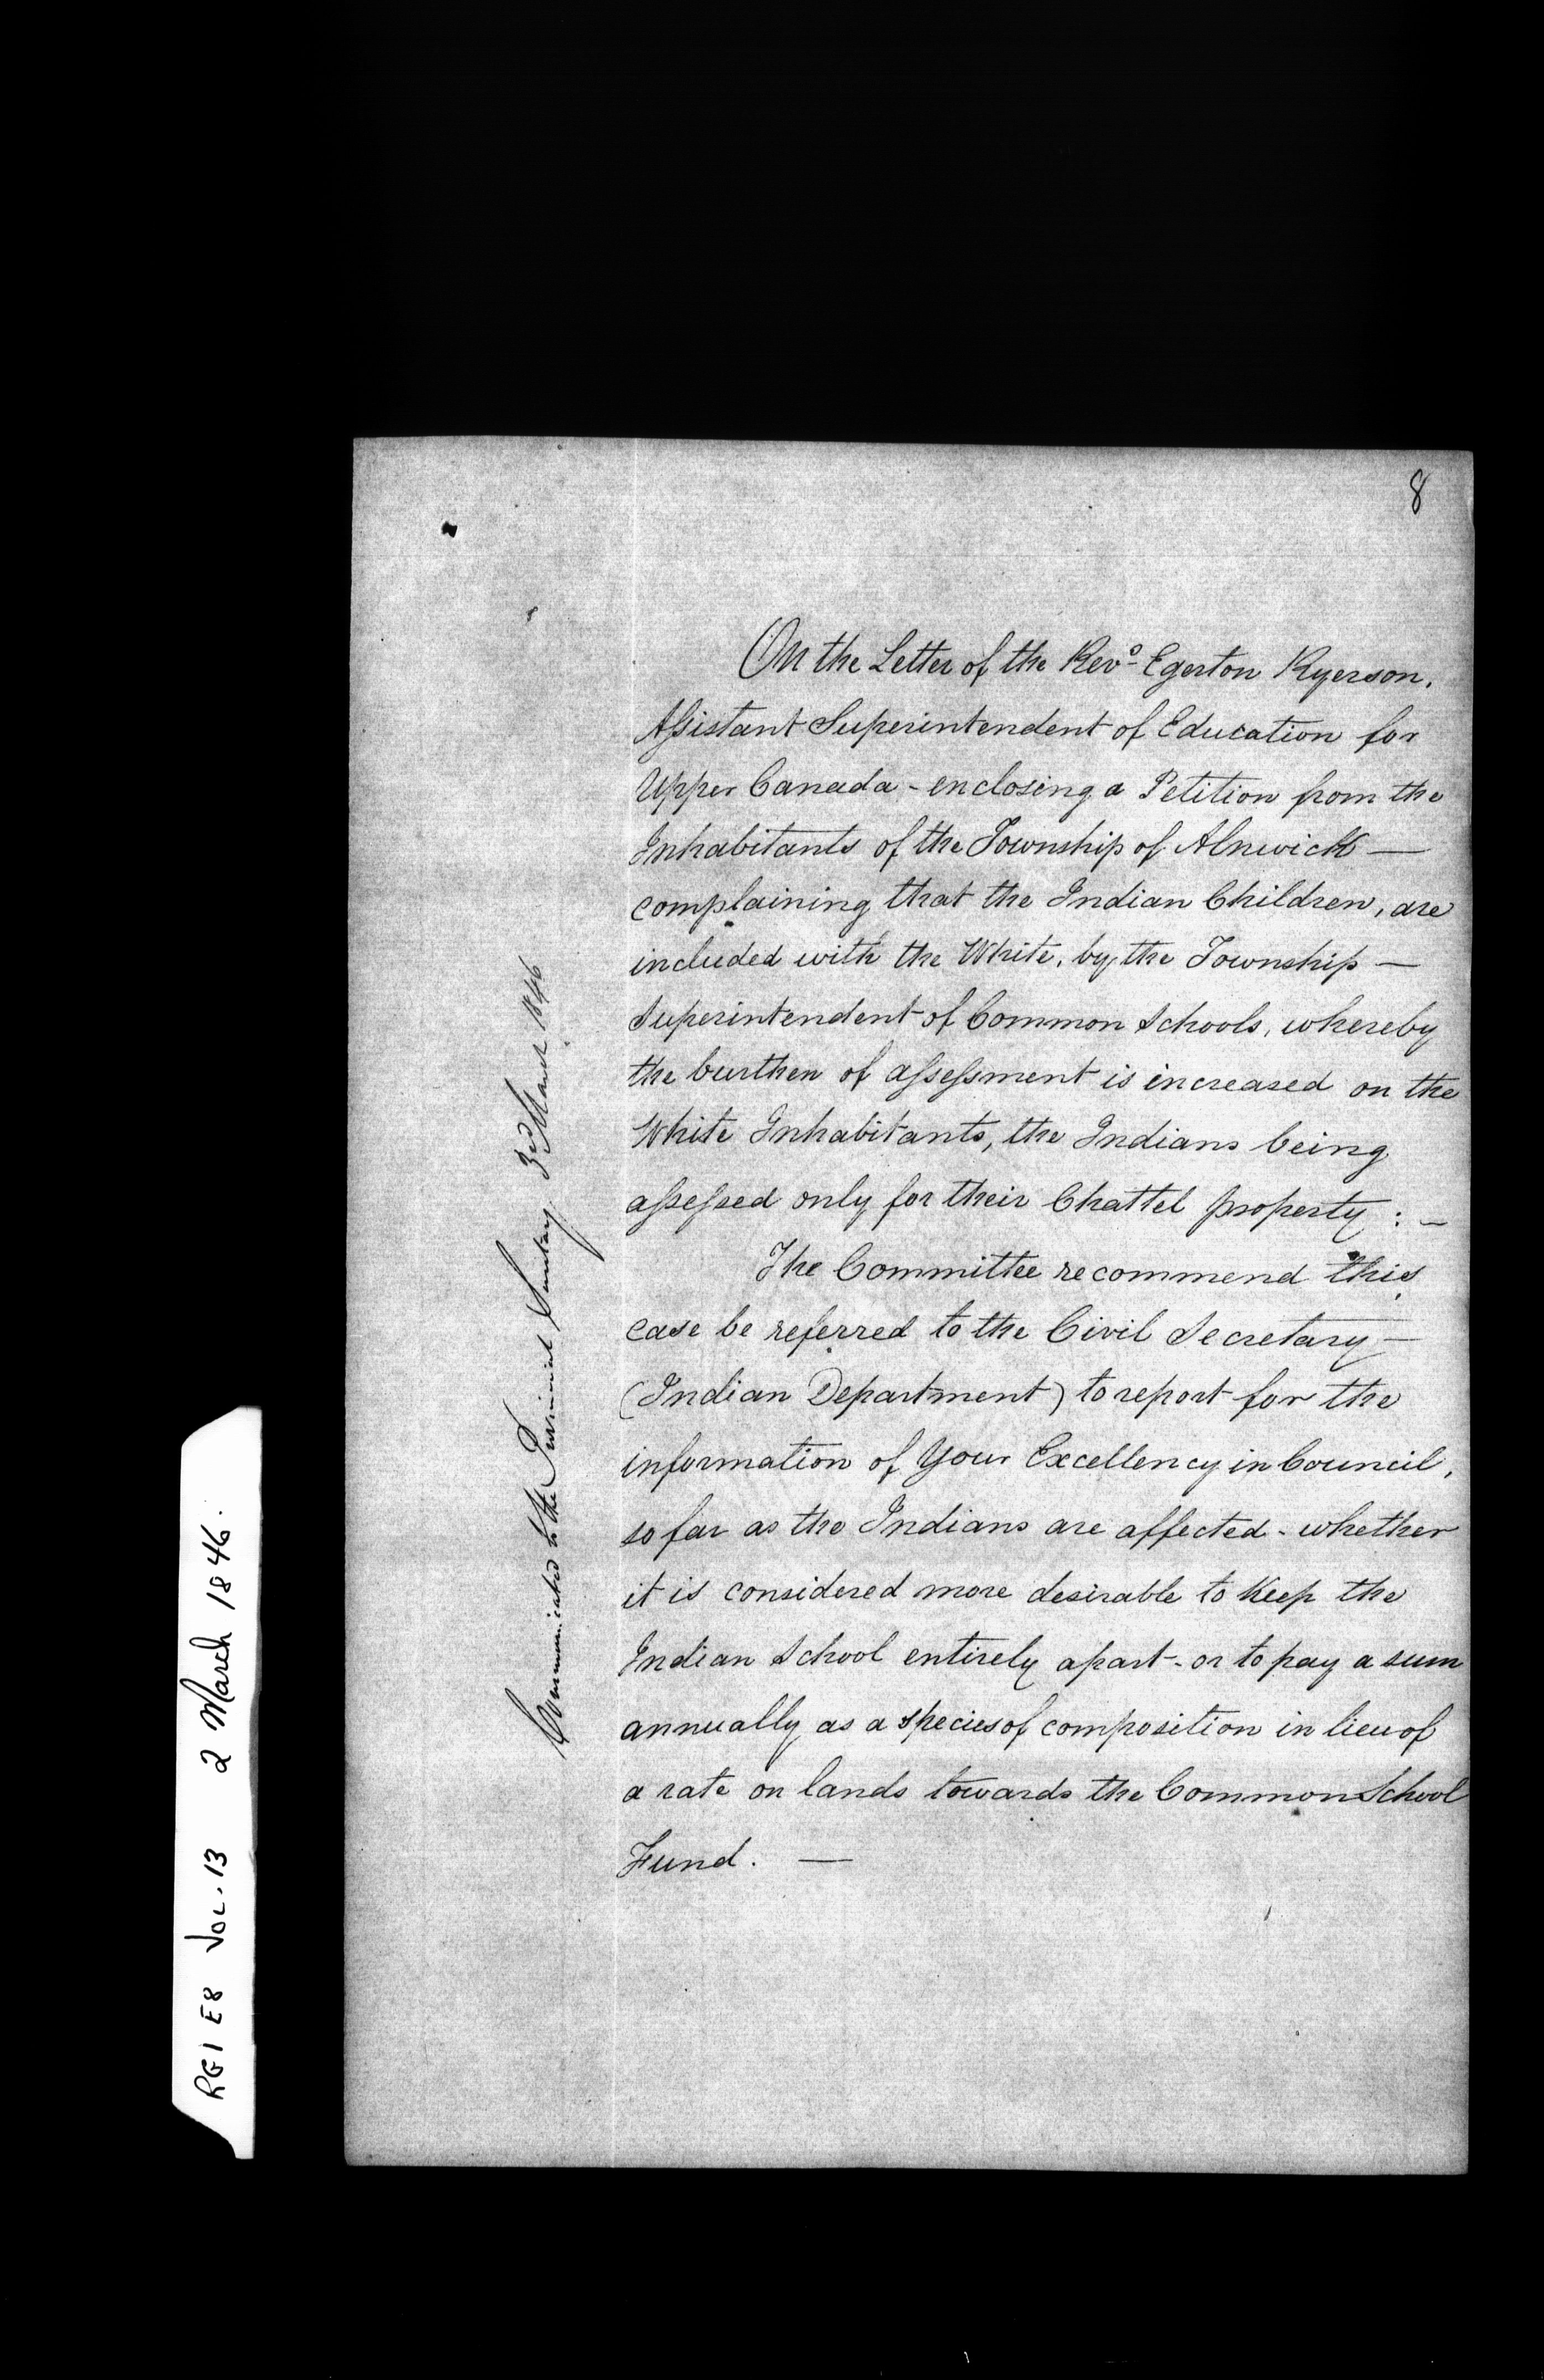 8
On the Letter of the Revd Egerton Ryerson,
Assistant Superintendent of Education for
Upper Canada - enclosing a Petition from the
Inhabitants of the Township of Alnwick —
complaining that the Indian Children, are
included with the White, by the Township —
Superintendent of Common Schools, whereby
the burthen of assessment is increased on the
White Inhabitants, the Indians being
assessed only for their Chattel property : —
The Committee recommend this
case be referred to the Civil Secretary —
(Indian Department) to report for the
information of Your Excellency in Council,
so far as the Indians are affected - whether
it is considered more desirable to Keep the
Indian School entirely apart - or to pay a sum
annually as a species of composition in lieu of
a rate on lands towards the Common School
Fund. —
Communicated to the Provincial Secretary 3rd March 1846
RG1 E8 VOL. 13 2 March 1846.